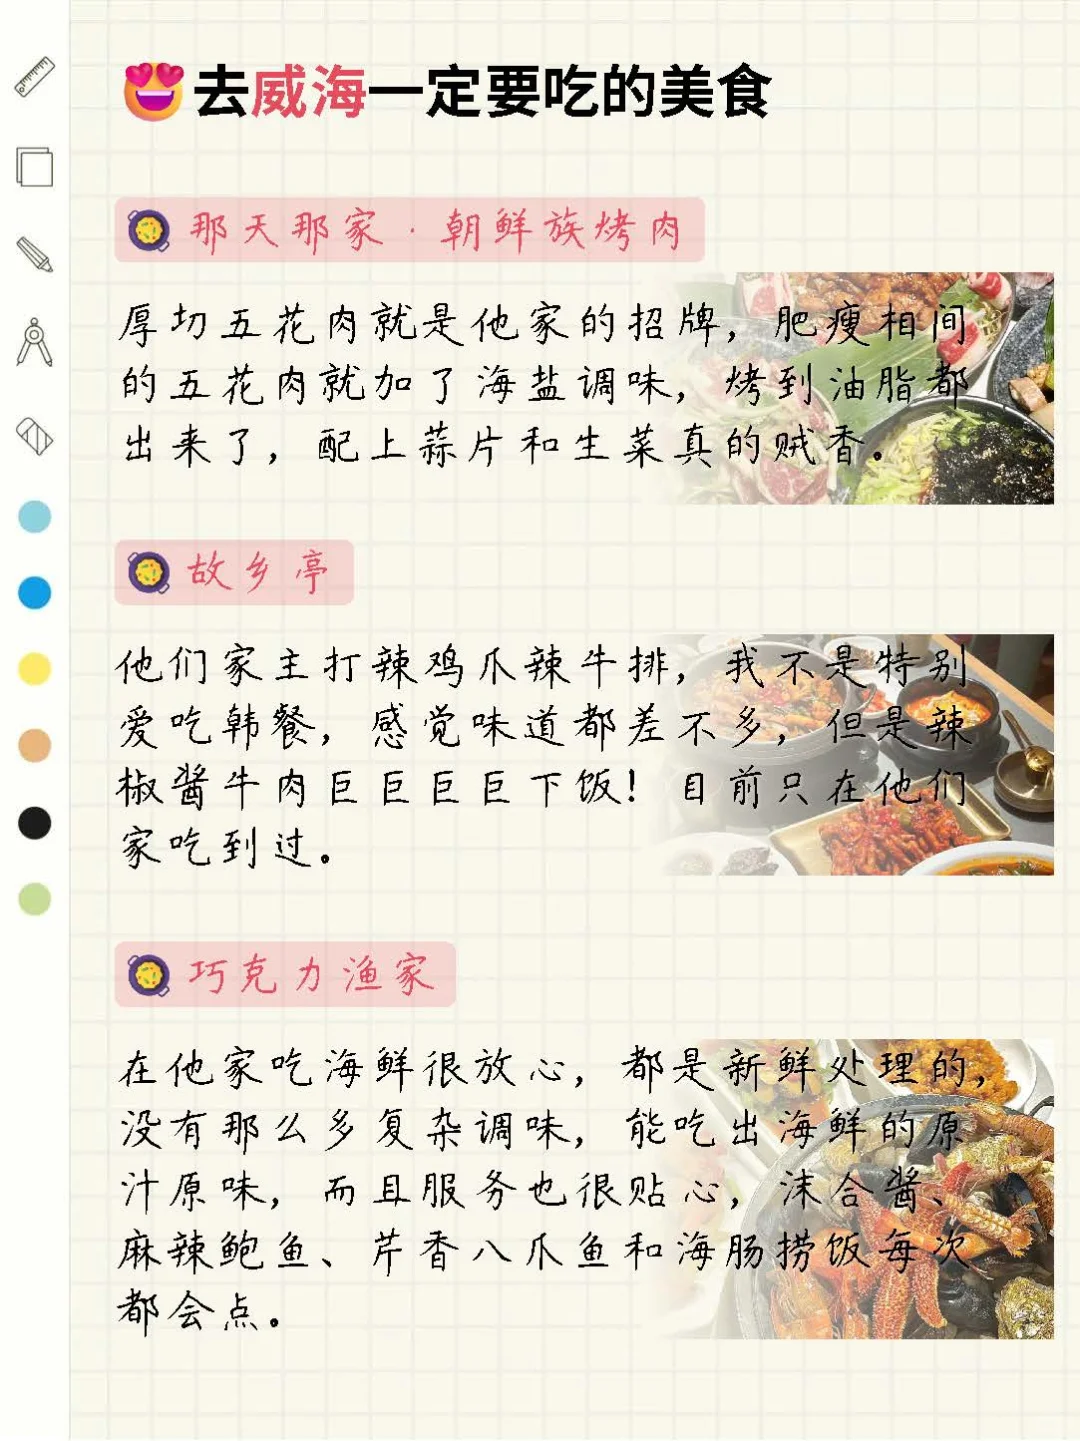 去威海一定要吃的美食
那天那家·朝鲜族烤肉
厚切五花肉就是他家的招牌，肥瘦相间
的五花肉就加了海盐调味，烤到油脂都
出来了，配上蒜片和生菜真的贼香。
故乡亭
他们家主打辣鸡爪辣牛排，我不是特别
爱吃韩餐，感觉味道都差不多，但是辣
椒酱牛肉巨巨巨巨下饭！目前只在他们
家吃到过。
巧克力渔家
在他家吃海鲜很放心，都是新鲜处理的，
没有那么多复杂调味，能吃出海鲜的原
汁原味，而且服务也很贴心，沫合酱、
麻辣鲍鱼、芹香八爪鱼和海肠捞饭每次
都会点。